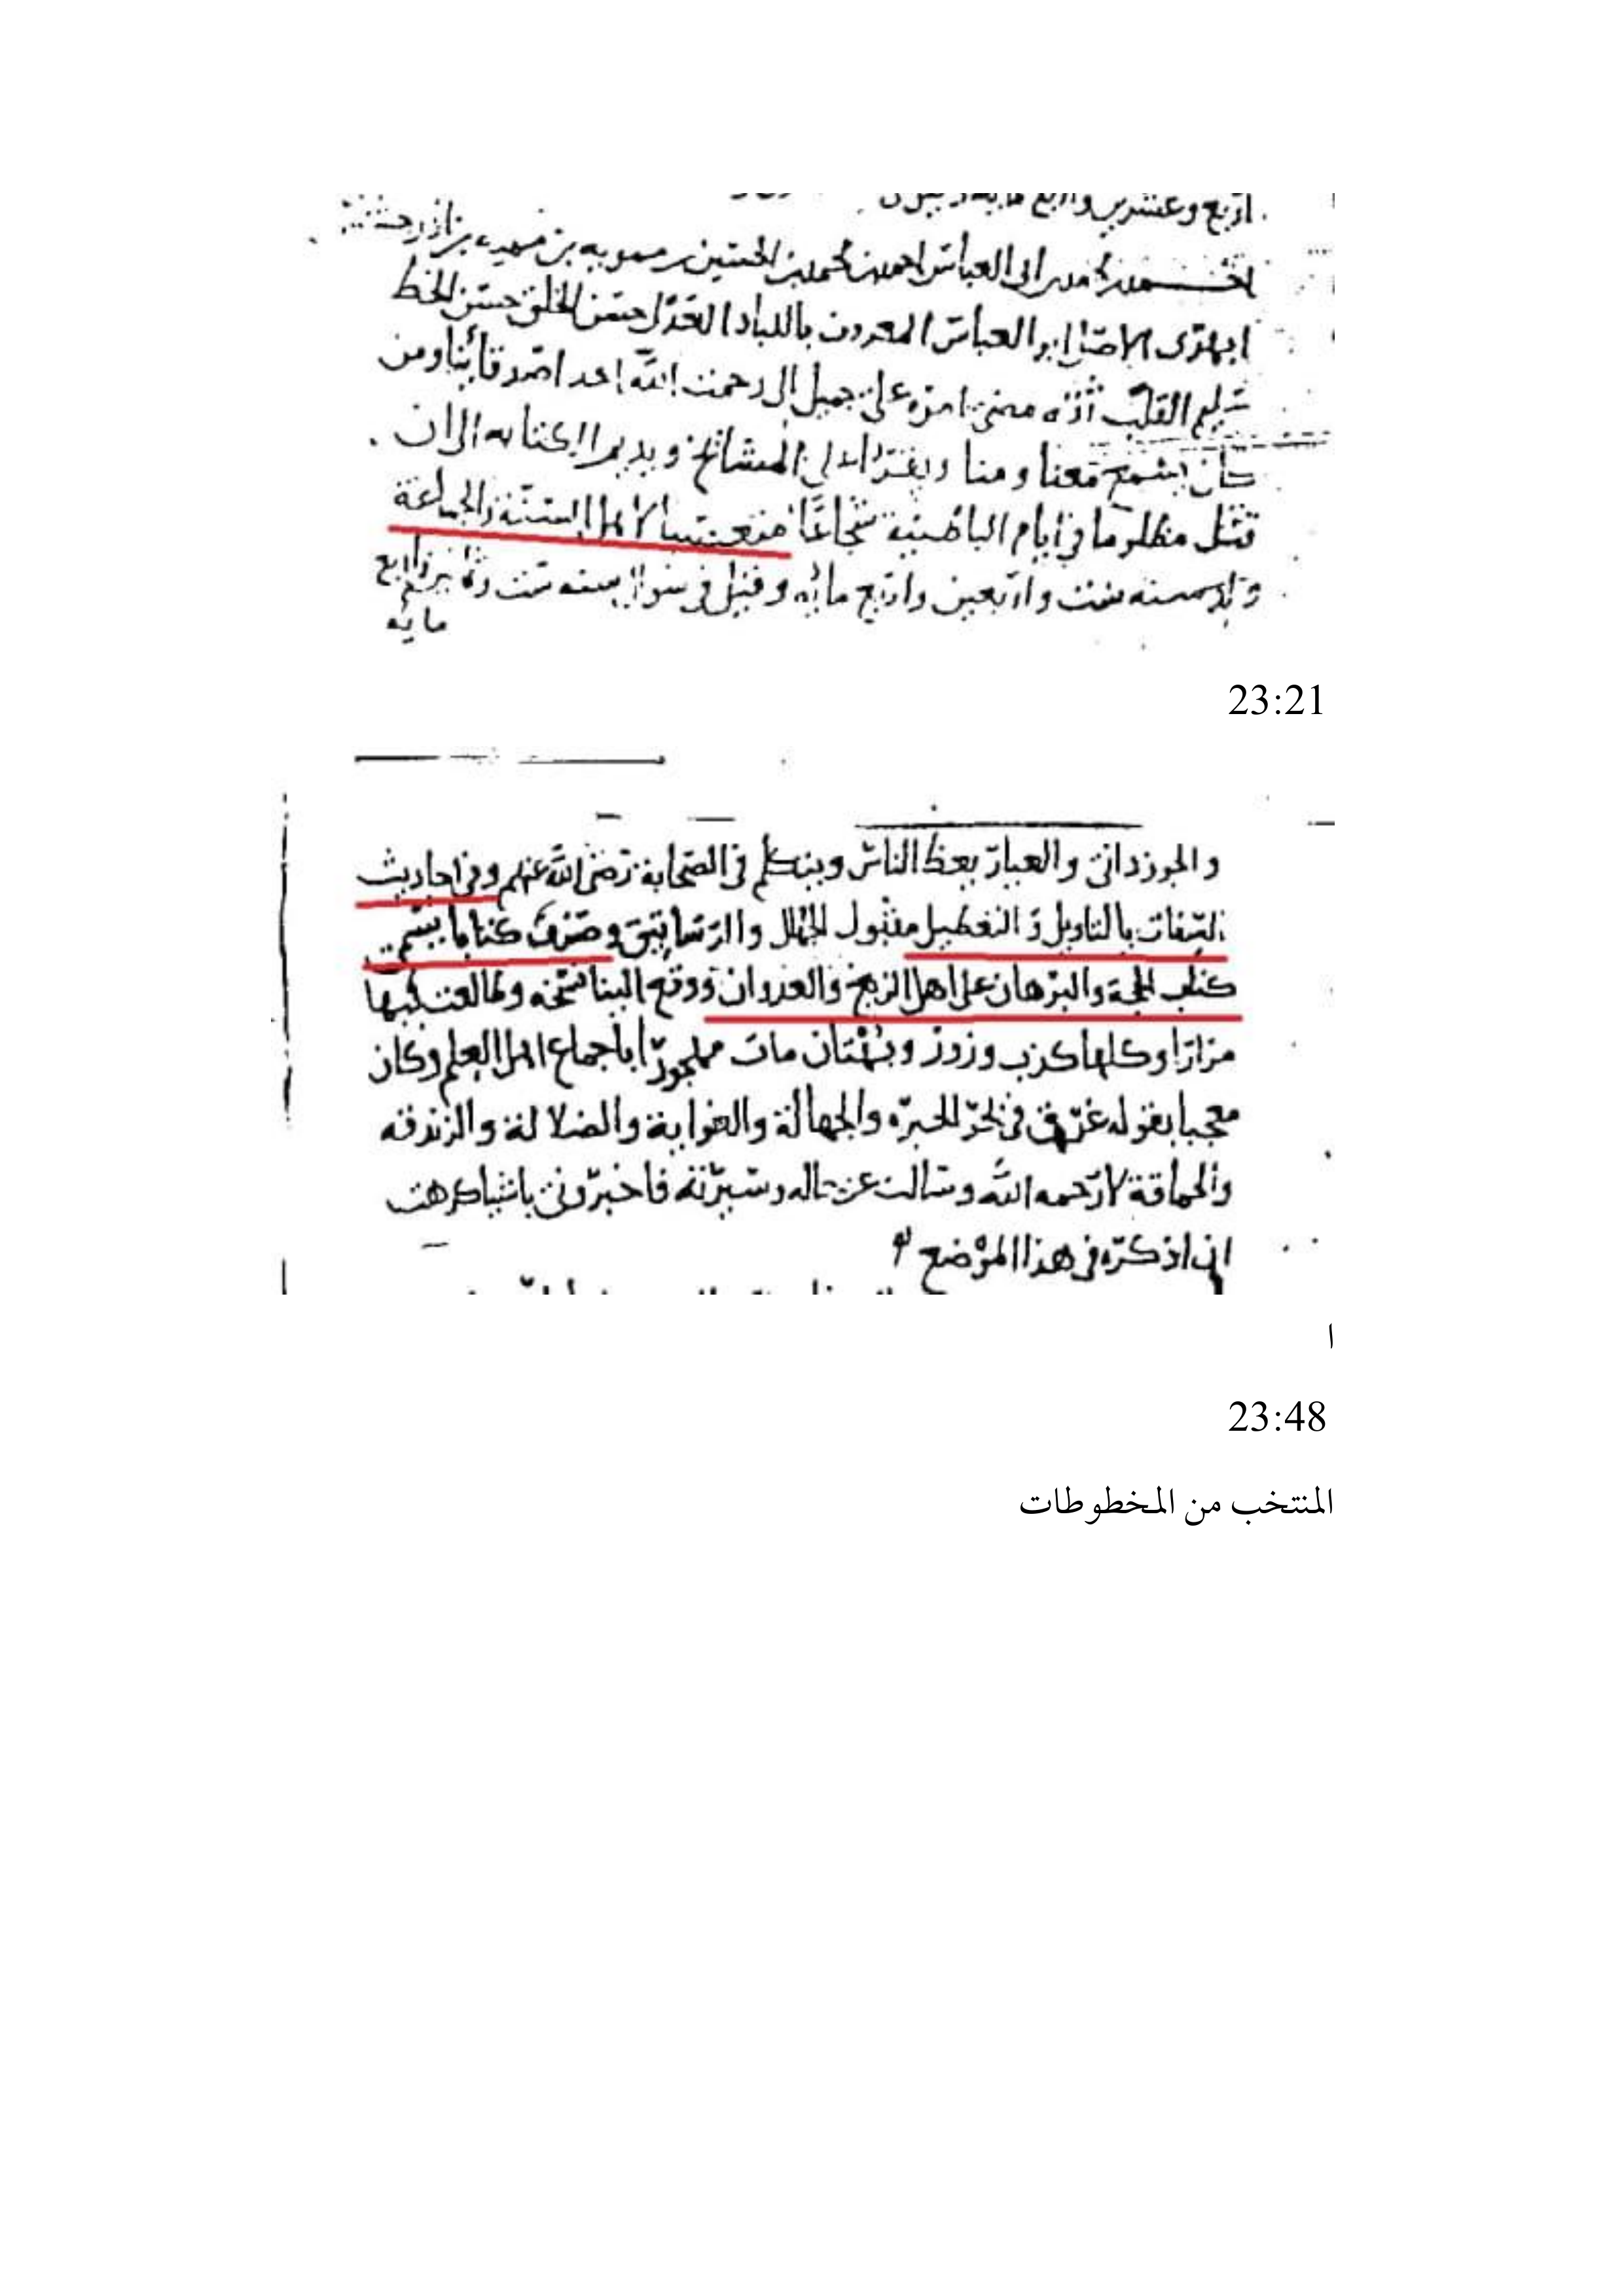 اربع وعشرين واربع مايه
احمد بن محمد بن ابي العباس احمد بن محمد بن الحسين بن
ابهرى الاصل ابو العباس المعروف باللباد العدل حسن الخلق حسن الخط
سليم القلب مضى امره على جميل الى رحمت الله احد اصدقائنا ومن
كان يسمع معنا ومنا ويقرا على المشائخ ويديم الكتابه الى ان
قتل مظلوما في ايام الباطنية شجاعًا متعصبا لاهل السنة والجماعة
ولد سنه ست واربعين واربع مائه وقتل في شوال سنه
مايه
23:21
والجوزدانى والعيار يعظ الناس ويتكلم فى الصحابة رضى الله عنهم وفى احاديث
الصفات بالتاويل والتعطيل مقبول الجهال والرساتيق وصنف كتابا يسمى
كتاب الحجة والبرهان على اهل الزيغ والعدوان ووقع الينا نسخه وطالعت كتبها
مرارا وكلها كذب وزور وبهتان مات مهجورا باجماع اهل العلم وكان
معجبا بقوله غرق فى بحر الحيرة والجهالة والغواية والضلالة والزندقه
والحماقة لا رحمه الله وسالت عن حاله وسيرته فاخبرونى باشيا كرهت
ان اذكره فى هذا الموضع
ا
23:48
المنتخب من المخطوطات